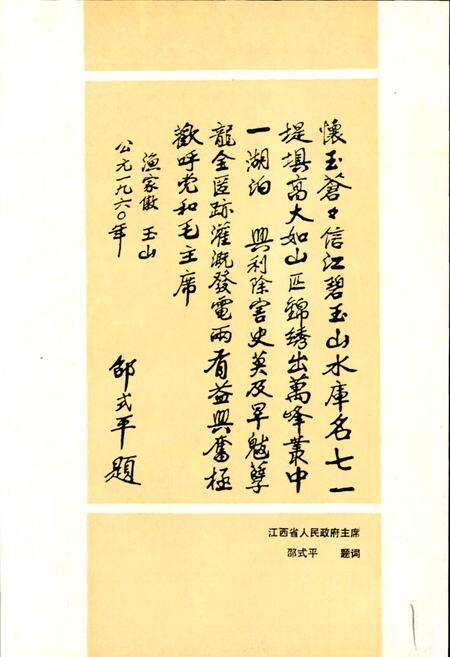 懷玉蒼々信江碧玉山水庫名七一
堤堰高大如山匹錦绣出萬峰叢中
一湖泊　興利除害史莫及旱魃孽
龍全匿跡灌溉發電兩有益興奮極
歡呼党和毛主席
漁家傲　玉山
公元一九六〇年
邵式平題
江西省人民政府主席
邵式平　题词